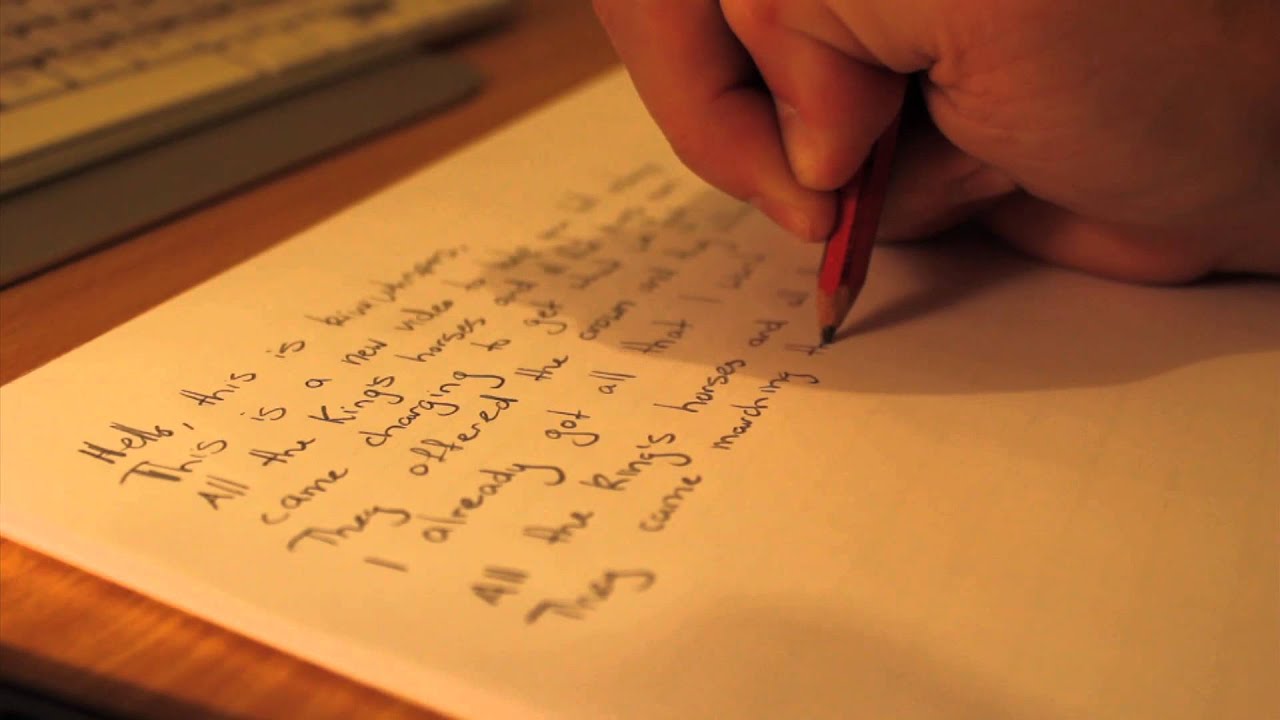 Hello, this is
This is a new video to
All the King's horses and all the King's men
came charging to get
They offered the crown and they
I already got all that I
All the King's horses and all
They came marching th